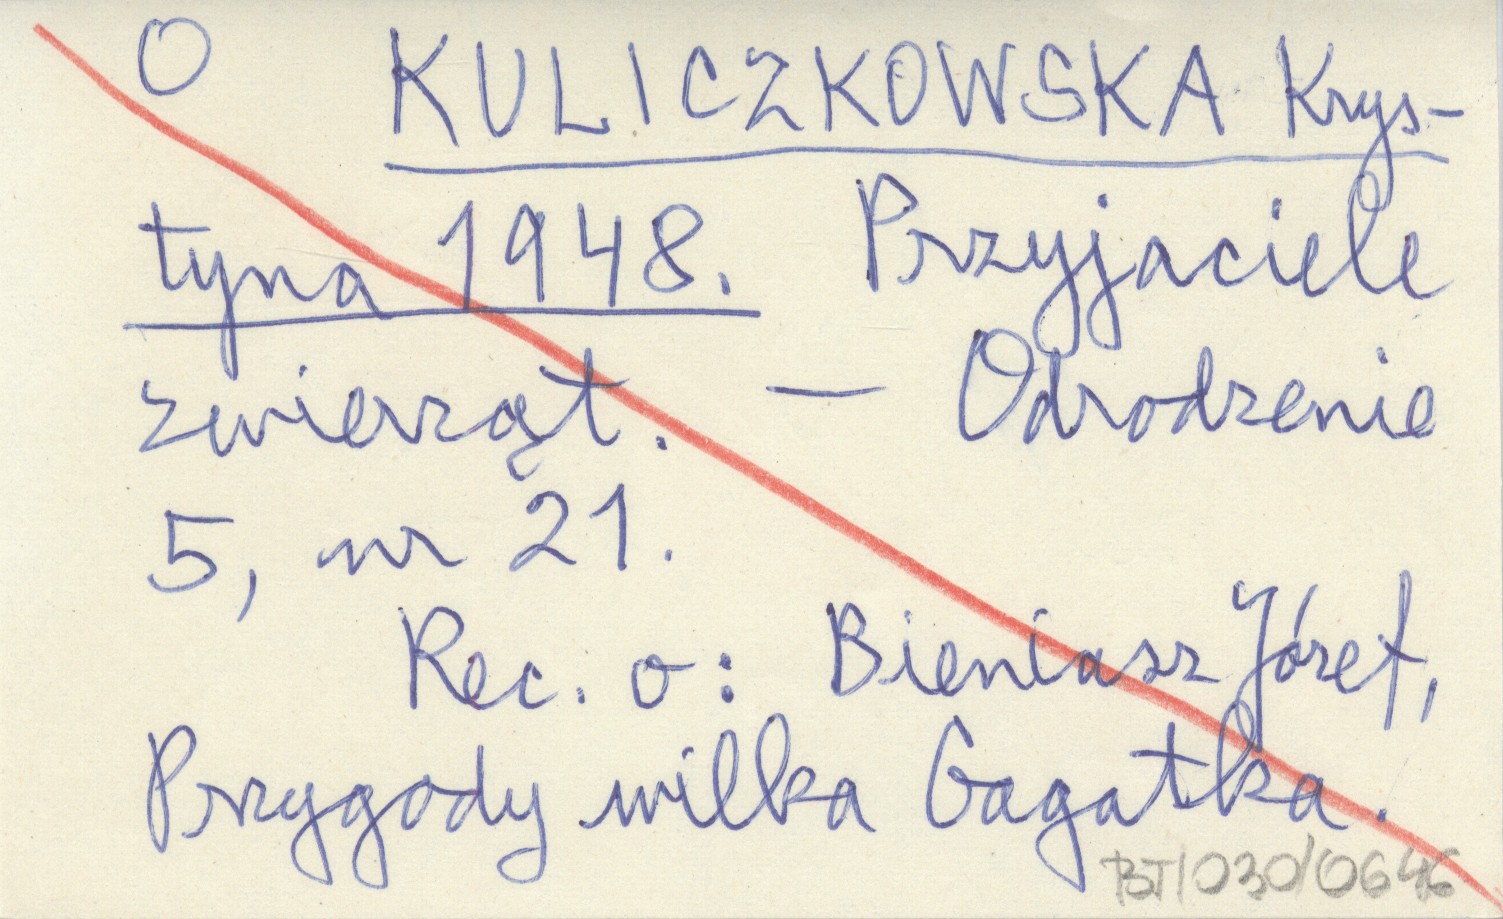 O KULICZKOWSKA Krys-
tyna 1948. Przyjaciele
zwierząt. — Odrodzenie
5, nr 21.
Rec. o: Bieniasz Józef,
Przygody wilka Gagatka.
BT/030/0646